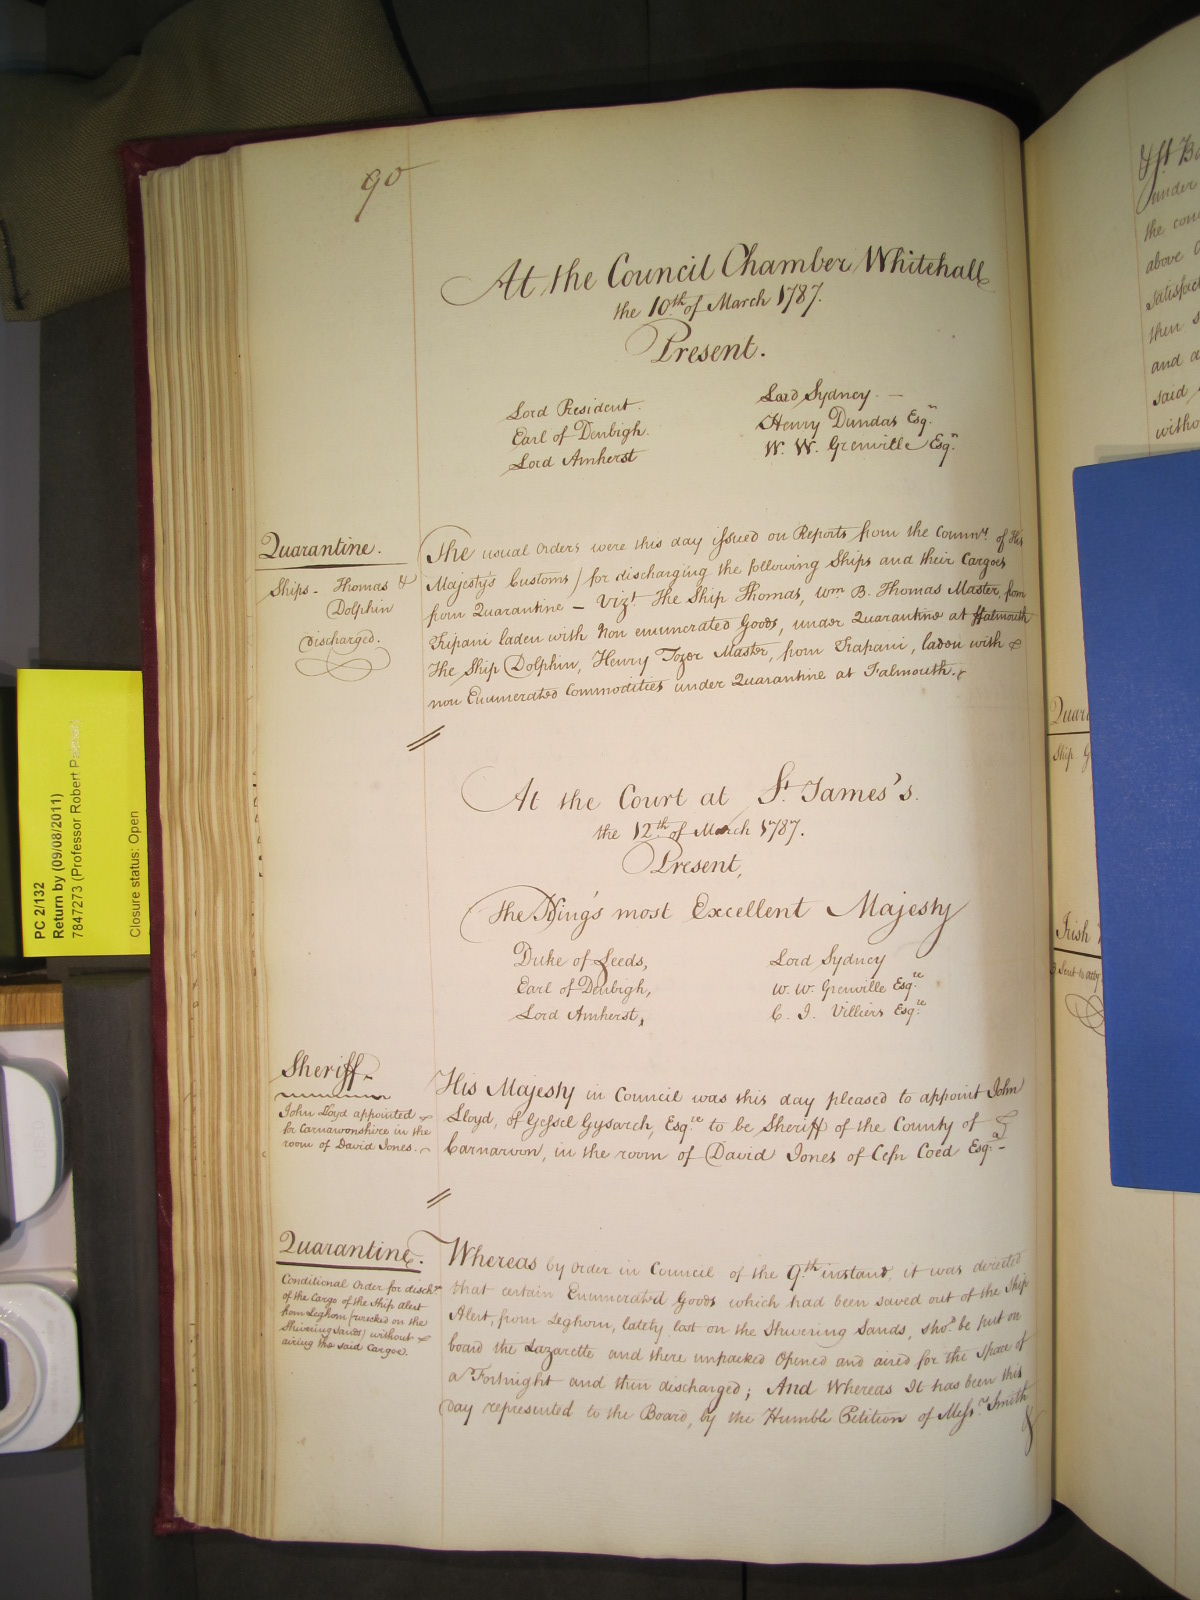 90
At the Council Chamber Whitehall
the 10th of March 1787.
Present.
Lord President.
Earl of Denbigh.
Lord Amherst
Lord Sydney
Henry Dundas Esqr
W. W. Grenville Esqr
Quarantine.
Ships - Thomas &
Dolphin
discharged.
The usual Orders were this day issued on Reports from the Commrs of His
Majesty's Customs / for discharging the following Ships and their Cargoes
from Quarantine - Vizt. The Ship Thomas, Wm B. Thomas Master, from
Tripani laden with Non enumerated Goods, under Quarantine at Falmouth
The Ship Dolphin, Henry Tozer Master, from Trapani, laden with
non Enumerated Commodities under Quarantine at Falmouth.
At the Court at St. James's.
the 12th of March 1787.
Present,
The King's most Excellent Majesty
Duke of Leeds,
Earl of Denbigh,
Lord Amherst,
Lord Sydney
W. W. Grenville Esqre
C. I. Villiers Esqre
Sheriff
John Lloyd appointed
for Carnarvonshire in the
room of David Jones.
His Majesty in Council was this day pleased to appoint John
Lloyd, of Gessel Gysarch, Esqre to be Sheriff of the County of
Carnarvon, in the room of David Jones of Cefn Coed Esqr
Quarantine.
Conditional Order for dischg
of the Cargo of the Ship Alert
from Leghorn (wrecked on the
Shivering Sands) without
airing the said Cargoe.
Whereas by Order in Council of the 9th instant, it was directed
that certain Enumerated Goods which had been saved out of the Ship
Alert, from Leghorn, lately lost on the Shivering Sands, shod. be put on
board the Lazarette and there unpacked Opened and aired for the space of
a Fortnight and then discharged; And Whereas It has been this
day represented to the Board, by the Humble Petition of Messrs Smith
PC 2/132
Return by (09/08/2011)
7847273 (Professor Robert Palmer)
Closure status: Open
under
the
above
then
and
said
Ship
Irish